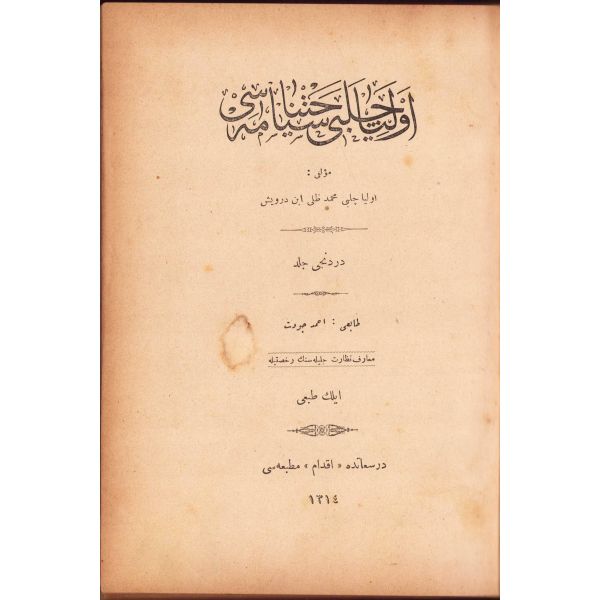 اوليا چلبى سياحتنامه سى
مؤلفى :
اوليا چلبى محمد ظلى ابن درويش
دردنجى جلد
طابعى : احمد جودت
معارف نظارت جليله سنك رخصتيله
ايلك طبعى
درسعادتده « اقدام » مطبعه سى
١٣١٤